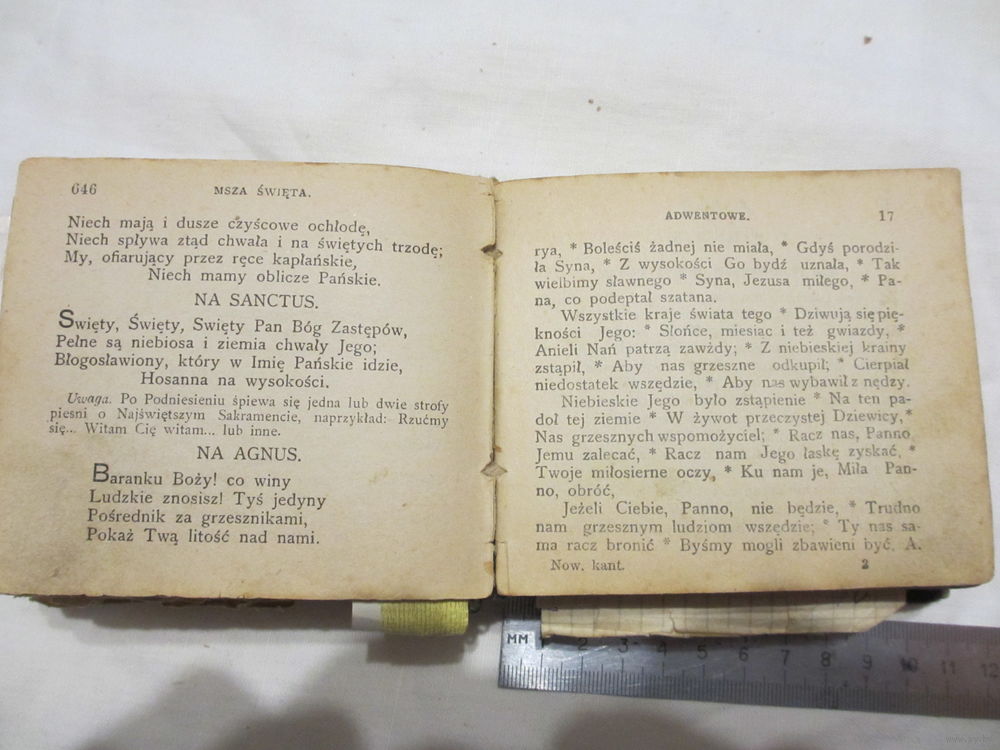 646
MSZA ŚWIĘTA.
Niech mają i dusze czyścowe ochłodę,
Niech spływa ztąd chwała i na świętych trzodę;
My, ofiarujący przez ręce kapłańskie,
Niech mamy oblicze Pańskie.
NA SANCTUS.
Święty, Święty, Swięty Pan Bóg Zastępów,
Pełne są niebiosa i ziemia chwały Jego;
Błogosławiony, który w Imię Pańskie idzie,
Hosanna na wysokości.
Uwaga. Po Podniesieniu śpiewa się jedna lub dwie strofy
piesni o Najświętszym Sakramencie, naprzykład: Rzućmy
się... Witam Cię witam... lub inne.
NA AGNUS.
Baranku Boży! co winy
Ludzkie znosisz! Tyś jedyny
Pośrednik za grzesznikami,
Pokaż Twą litość nad nami.
ADWENTOWE.
17
rya, * Boleściś żadnej nie miała, * Gdyś porodzi-
ła Syna, * Z wysokości Go bydź uznała, * Tak
wielbimy sławnego * Syna, Jezusa miłego, * Pa-
na, co podeptał szatana.
Wszystkie kraje świata tego * Dziwują się pię-
kności Jego: * Słońce, miesiac i też gwiazdy, *
Anieli Nań patrzą zawżdy; * Z niebieskiej krainy
zstąpił, * Aby nas grzeszne odkupił; * Cierpiał
niedostatek wszędzie, * Aby nas wybawił z nędzy.
Niebieskie Jego było zstąpienie * Na ten pa-
doł tej ziemie * W żywot przeczystej Dziewicy, *
Nas grzesznych wspomożyciel; * Racz nas, Panno
Jemu zalecać, * Racz nam Jego łaskę zyskać, *
Twoje miłosierne oczy, * Ku nam je, Miła Pan-
no, obróć,
Jeżeli Ciebie, Panno, nie będzie, * Trudno
nam grzesznym ludziom wszędzie; * Ty nas sa-
ma racz bronić * Byśmy mogli zbawieni być. A.
Now. kant.
2
MM 1 2 3 4 5 6 7 8 9 10 11 12